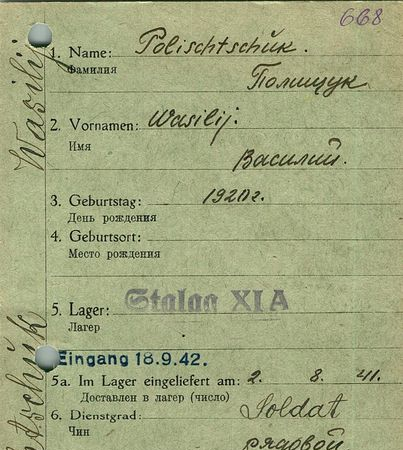 668
1. Name: Polischtschük.
Фамилия
Полищук
2. Vornamen: Wasilij.
Имя
Василий.
3. Geburtstag: 1920г.
День рождения
4. Geburtsort:
Место рождения
Stalag XI A
5. Lager:
Лагерь
Eingang 18.9.42.
5a. Im Lager eingeliefert am: 2. 8. 41.
Доставлен в лагерь (число)
6. Dienstgrad: Soldat
Чин
рядовой
Wasilij
tschük